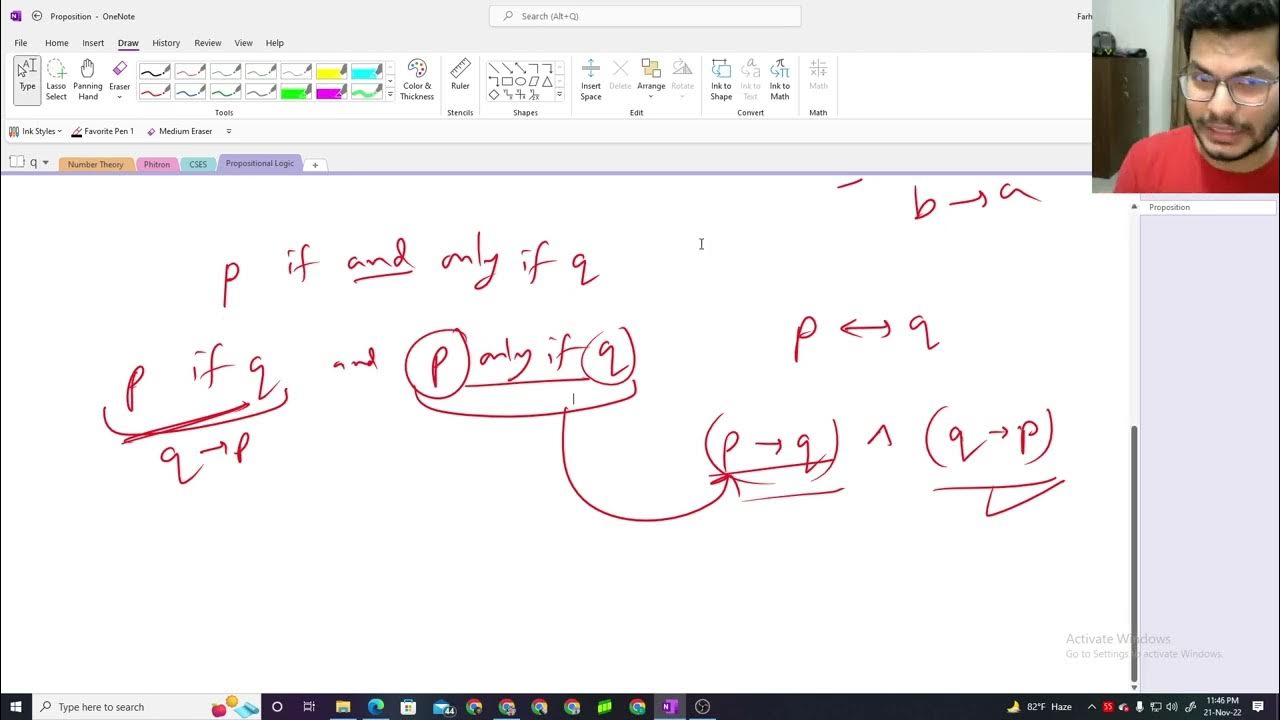 Proposition - OneNote
Search (Alt+Q)
Farh
File Home Insert Draw History Review View Help
Type
Lasso Select
Panning Hand
Eraser
Color & Thickness
Ruler
Insert Space
Delete
Arrange
Rotate
Ink to Shape
Ink to Text
Ink to Math
Math
Tools Stencils Shapes Edit Convert Math
Ink Styles Favorite Pen 1 Medium Eraser
q Number Theory Phitron CSES Propositional Logic +
Proposition
b → a
p if and only if q
p ↔ q
p if q and p only if q
q → p
(p → q) ∧ (q → p)
Activate Windows
Go to Settings to activate Windows.
Type here to search
44
82°F Haze
11:46 PM
21-Nov-22